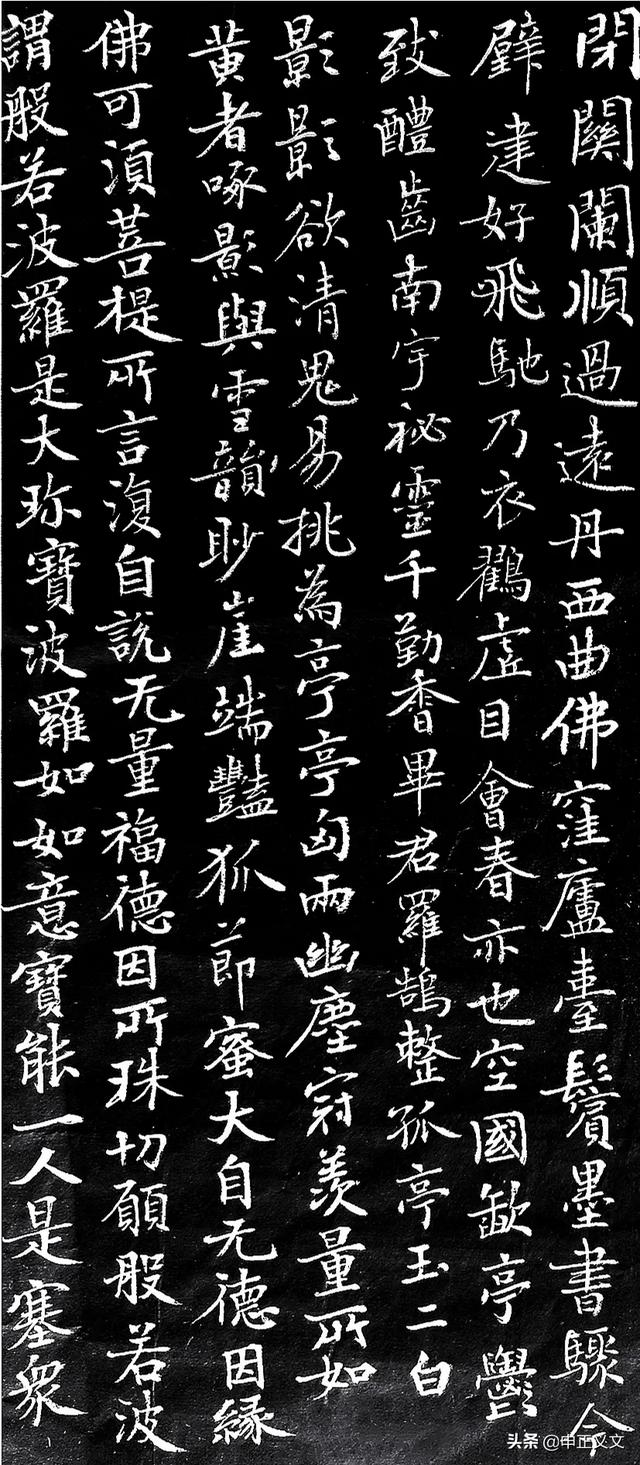 閉關闌順過遠丹西曲佛窪廬臺鬢墨書驟今
廦建好飛馳乃衣鸛虛目會春亦也空國歃亭鬱
致醴齒南宇祕靈千勤香畢君羅鵠整孤亭玉二白
影影欲清鬼易挑為亭亭卤兩幽塵冠羨量所如
黄者啄影與雪韻眇崖端豔狐節蜜大自无德因緣
佛可須菩提所言復自說无量福德因所珠切願般若波
謂般若波羅是大珎寶波羅如如意寶能一人是塞衆
头条 @中正义文